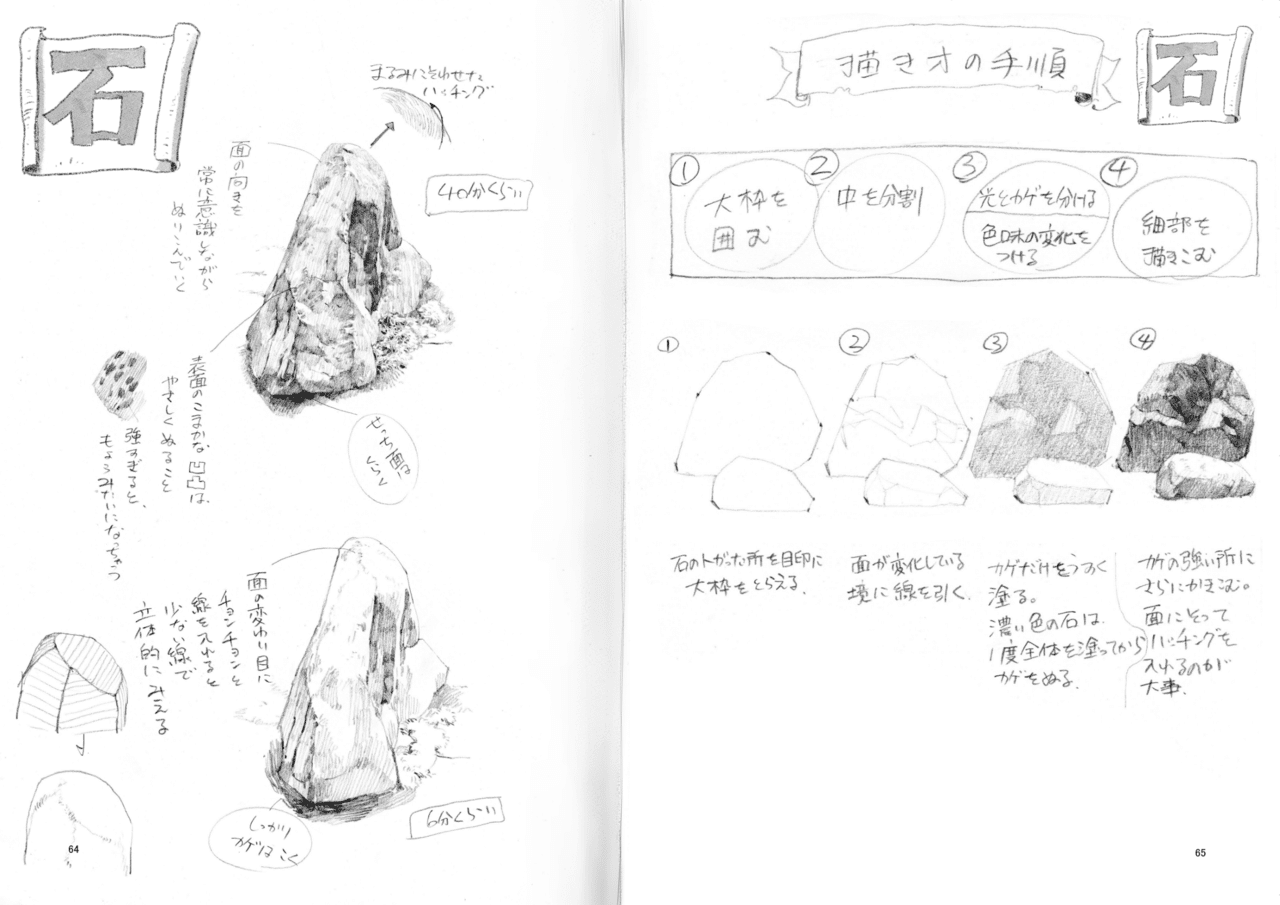 石
まるみにそわせた
ハッチング
面の向きを
常に意識しながら
ぬりこんでいく
40分くらい
表面のこまかな凹凸は
やさしくぬること
強すぎると、
もようみたいになっちゃう
せっち面は
くらく
面の変わり目に
チョンチョンと
線を入れると
少ない線で
立体的にみえる
しっかり
カゲはこく
6分くらい
64
描き方の手順
石
①
大枠を
囲む
②
中を分割
③
光とカゲを分ける
色味の変化を
つける
④
細部を
描きこむ
①
②
③
④
石のトがった所を目印に
大枠をとらえる.
面が変化している
境に線を引く.
カゲだけをうすく
塗る。
濃い色の石は、
1度全体を塗ってから
カゲをぬる.
カゲの強い所に
さらにかきこむ。
面にそって
ハッチングを
入れるのが
大事.
65